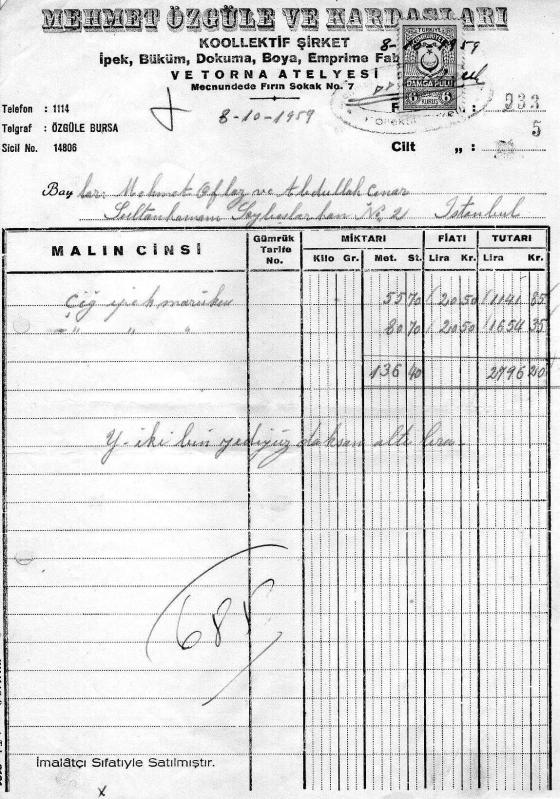 MEHMET ÖZGÜLE VE KARDAŞLARI
KOOLLEKTİF ŞİRKET
İpek, Büküm, Dokuma, Boya, Emprime Fab
VE TORNA ATELYESİ
Mecnundede Fırın Sokak No. 7
8-10-1959
TÜRKİYE CUMHURİYETİ
DAMGA PULU
6 KURUŞ 6
Telefon : 1114
Telgraf : ÖZGÜLE BURSA
Sicil No. 14806
8-10-1959
F : 933
Cilt „ : 5
Bay lar: Mehmet Oflaz ve Abdullah Çınar
Sultanhamam No 2 İstanbul
MALIN CİNSİ
Gümrük Tarife No.
MİKTARI
FİATI
TUTARI
Kilo Gr. Met. St. Lira Kr. Lira Kr.
Çöğ ipek maroken 55 70 20 50 1141 85
- " " " 80 70 20 50 1654 35
136 40 2796 20
Y- iki bin yediyüz doksan altı lira -
İmalâtçı Sıfatiyle Satılmıştır.
x